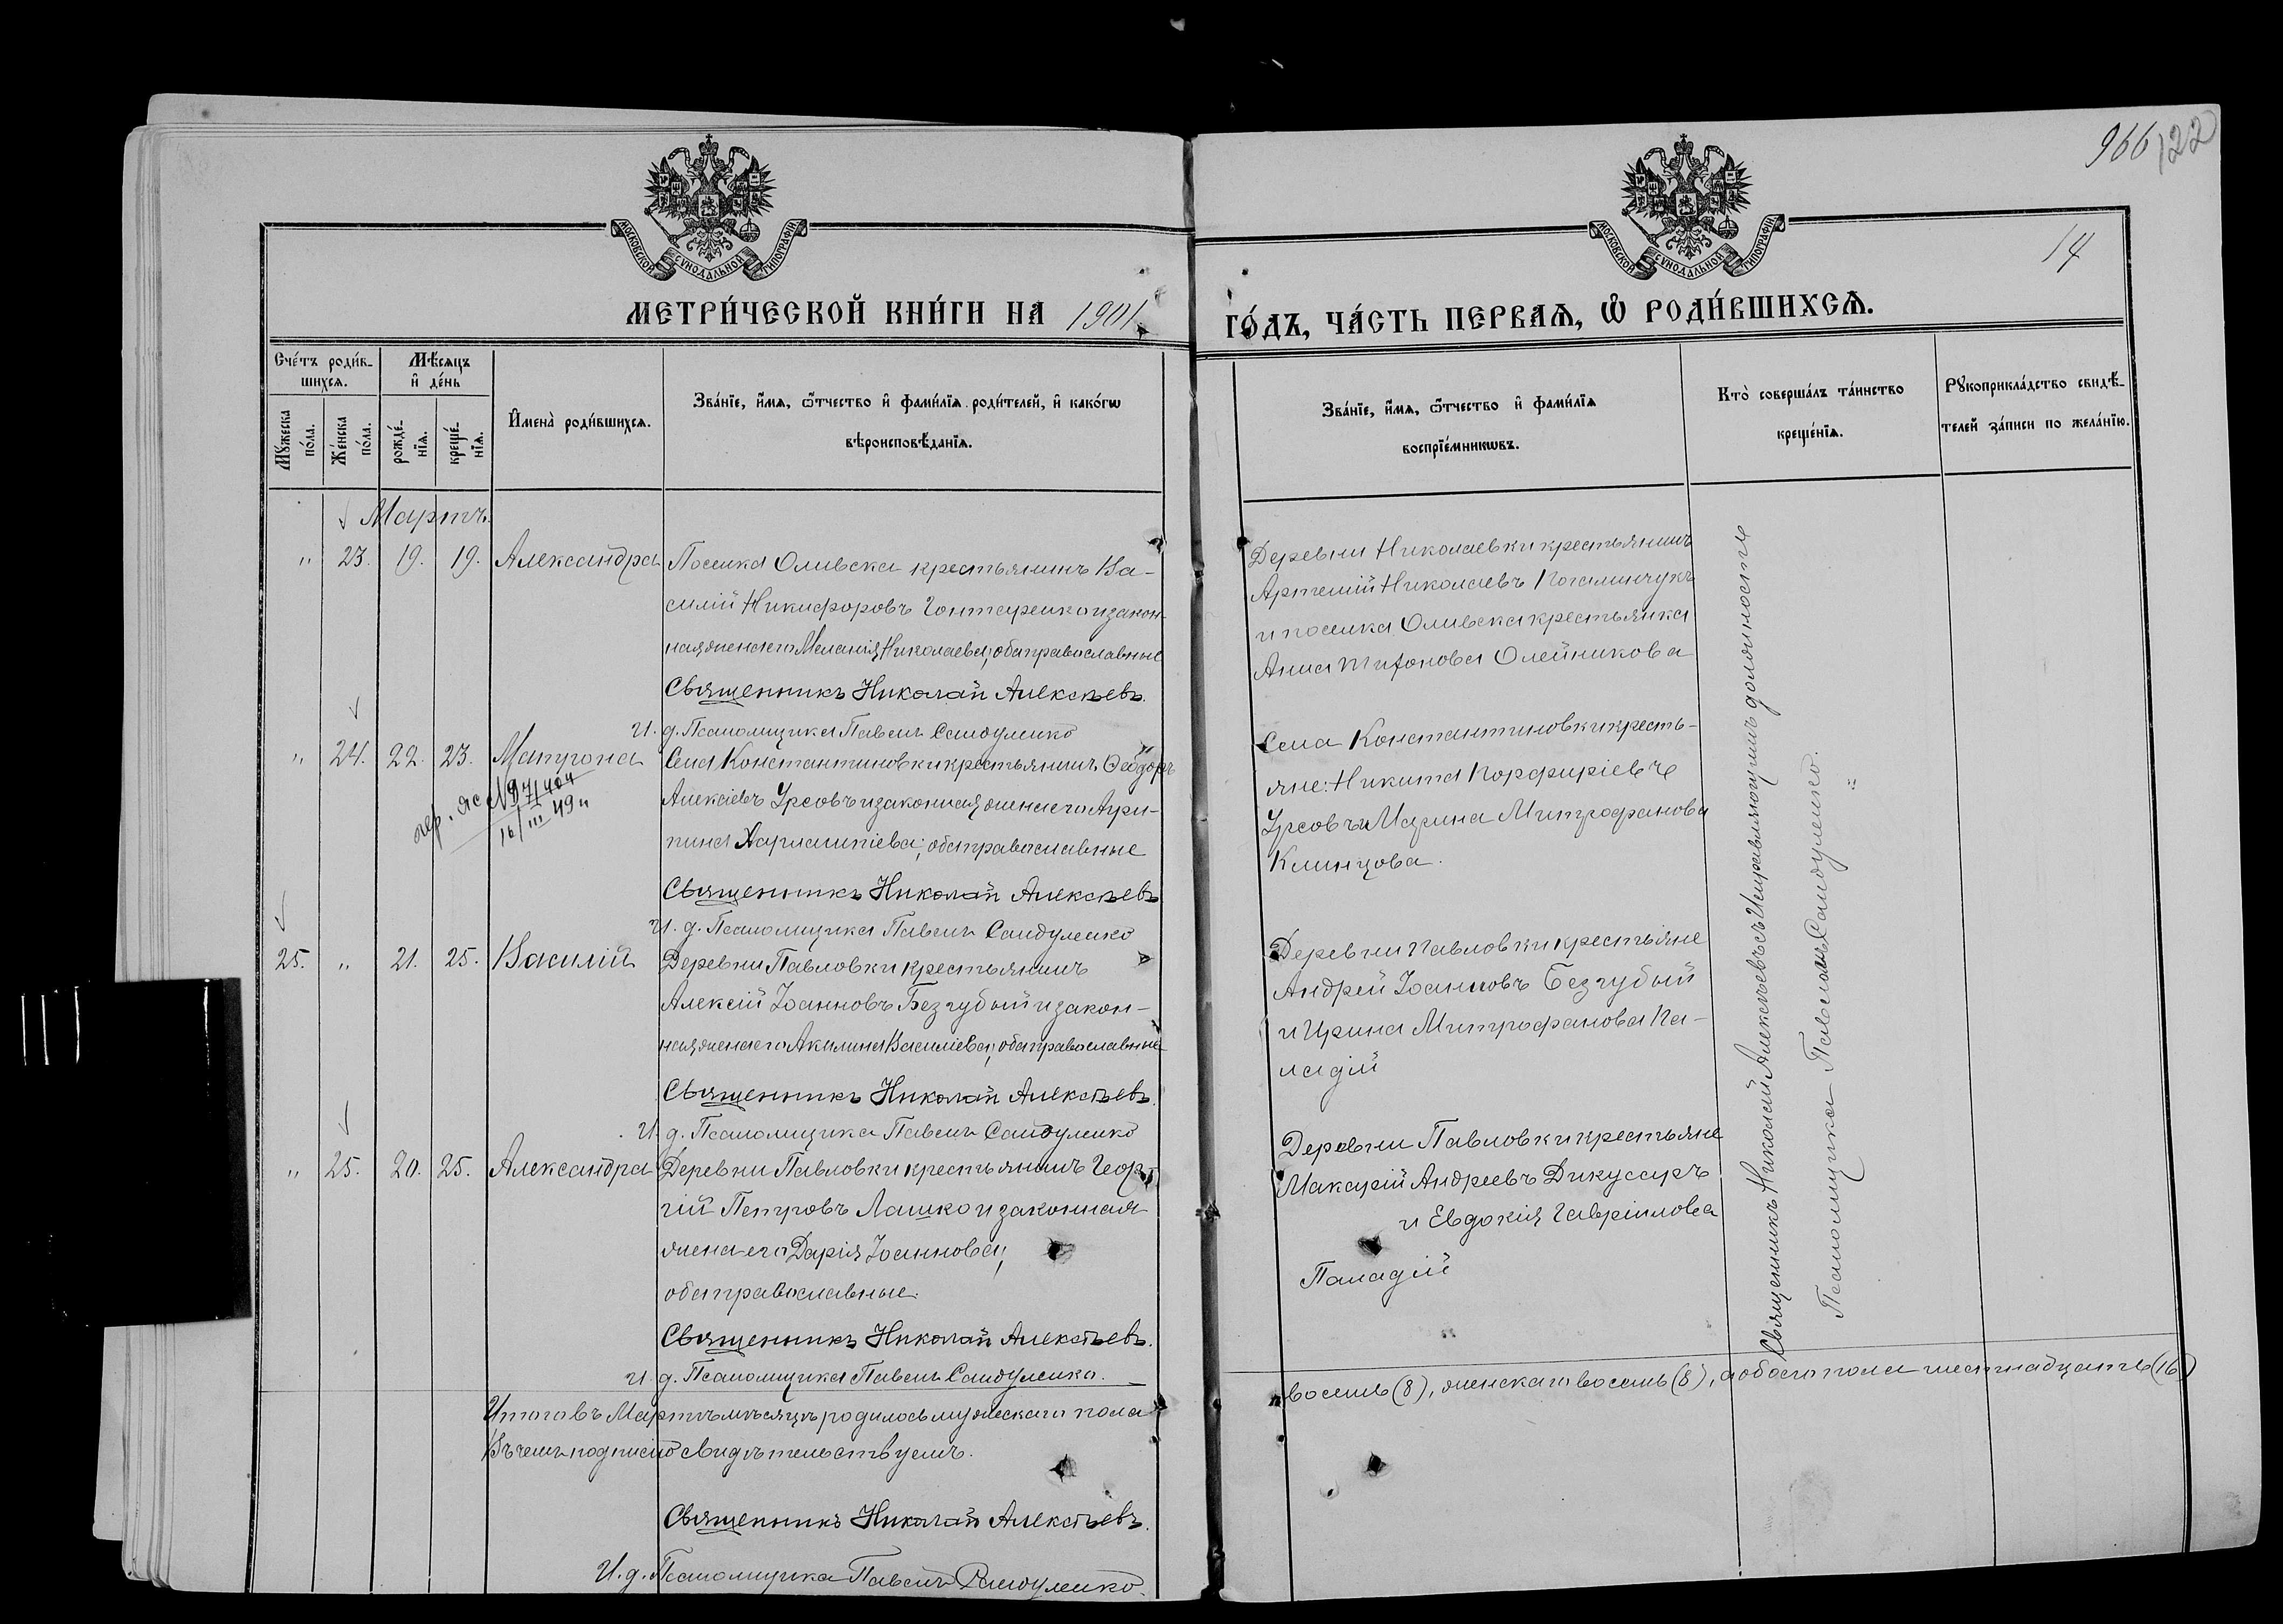 966 122
14
МОСКОВСКОЙ СѴНОДАЛЬНОЙ ТИПОГРАФІИ
МОСКОВСКОЙ СѴНОДАЛЬНОЙ ТИПОГРАФІИ
МЕТРИ́ЧЕСКОЙ КНИ́ГИ НА 1901
ГО́ДЪ, ЧА́СТЬ ПЕРВАѦ, Ѡ҆ РОДИ́ВШИХСѦ.
Сче́тъ роди́в-
шихсѧ.
Мѣ́сѧцъ
и҆ де́нь
Мꙋ́жеска
по́ла.
Же́нска
по́ла.
рожде́-
нїѧ.
креще́-
нїѧ.
И҆мена̀ роди́вшихсѧ.
Зва́нїе, и҆́мѧ, ѻ҆́тчество и҆ фами́лїѧ роди́телей, и҆ како́гѡ
вѣроисповѣ́данїѧ.
Зва́нїе, и҆́мѧ, ѻ҆́тчество и҆ фами́лїѧ
воспрїе́мникѡвъ.
Кто̀ соверша́лъ та́инство
креще́нїѧ.
Рꙋкоприкла́дство свидѣ́-
телей за́писи по жела́нїю.
Мартъ.
" 23. 19. 19. Александра
Поселка Оливска крестьянинъ Ва-
силій Никифоровъ Гонтаренко и закон-
ная жена его Меланія Николаева; оба православные
Священникъ Николай Алексѣевъ.
И. д. Псаломщика Павелъ Сандуленко
Деревни Николаевки крестьянинъ
Артемій Николаевъ
и поселка Оливска крестьянка
Анна Тифонова Олейникова
" 24. 22. 23. Матрона
Села Константиновки крестьянинъ Ѳеодоръ
Алексіевъ Урсовъ и законная жена его Агри-
пина Харлампіева; оба православные
Священникъ Николай Алексѣевъ
И. д. Псаломщика Павелъ Сандуленко
16/III 49"
Села Константиновки кресть-
яне: Никита Порфиріевъ
Урсовъ и Марина Митрофанова
Клинцова.
25. " 21. 25. Василій
Деревни Павловки крестьянинъ
Алексій Іоанновъ Беззубый и закон-
ная жена его Акилина Василіева; оба православные
Священникъ Николай Алексѣевъ.
И. д. Псаломщика Павелъ Сандуленко
Деревни Павловки крестьяне
Андрей Іоанновъ Беззубый
и Ирина Митрофанова Па-
ладій
" 25. 20. 25. Александра
Деревни Павловки крестьянинъ Геор-
гій Петровъ Лашко и законная
жена его Дарія Іоаннова;
оба православные.
Священникъ Николай Алексѣевъ.
И. д. Псаломщика Павелъ Сандуленко.
Деревни Павловки крестьяне
Макарій Андреевъ Дикусаръ
и Евдокія Гавріилова
Паладій
Священникъ Николай Алексѣевъ съ Исправляющимъ должность
Псаломщика Павломъ Сандуленко.
Итого въ Мартѣ мѣсяцѣ родилось мужескаго пола
восемь (8), женскаго восемь (8), а обоего пола шестнадцать (16)
Въ чемъ подписью свидѣтельствуемъ.
Священникъ Николай Алексѣевъ.
И. д. Псаломщика Павелъ Сандуленко.